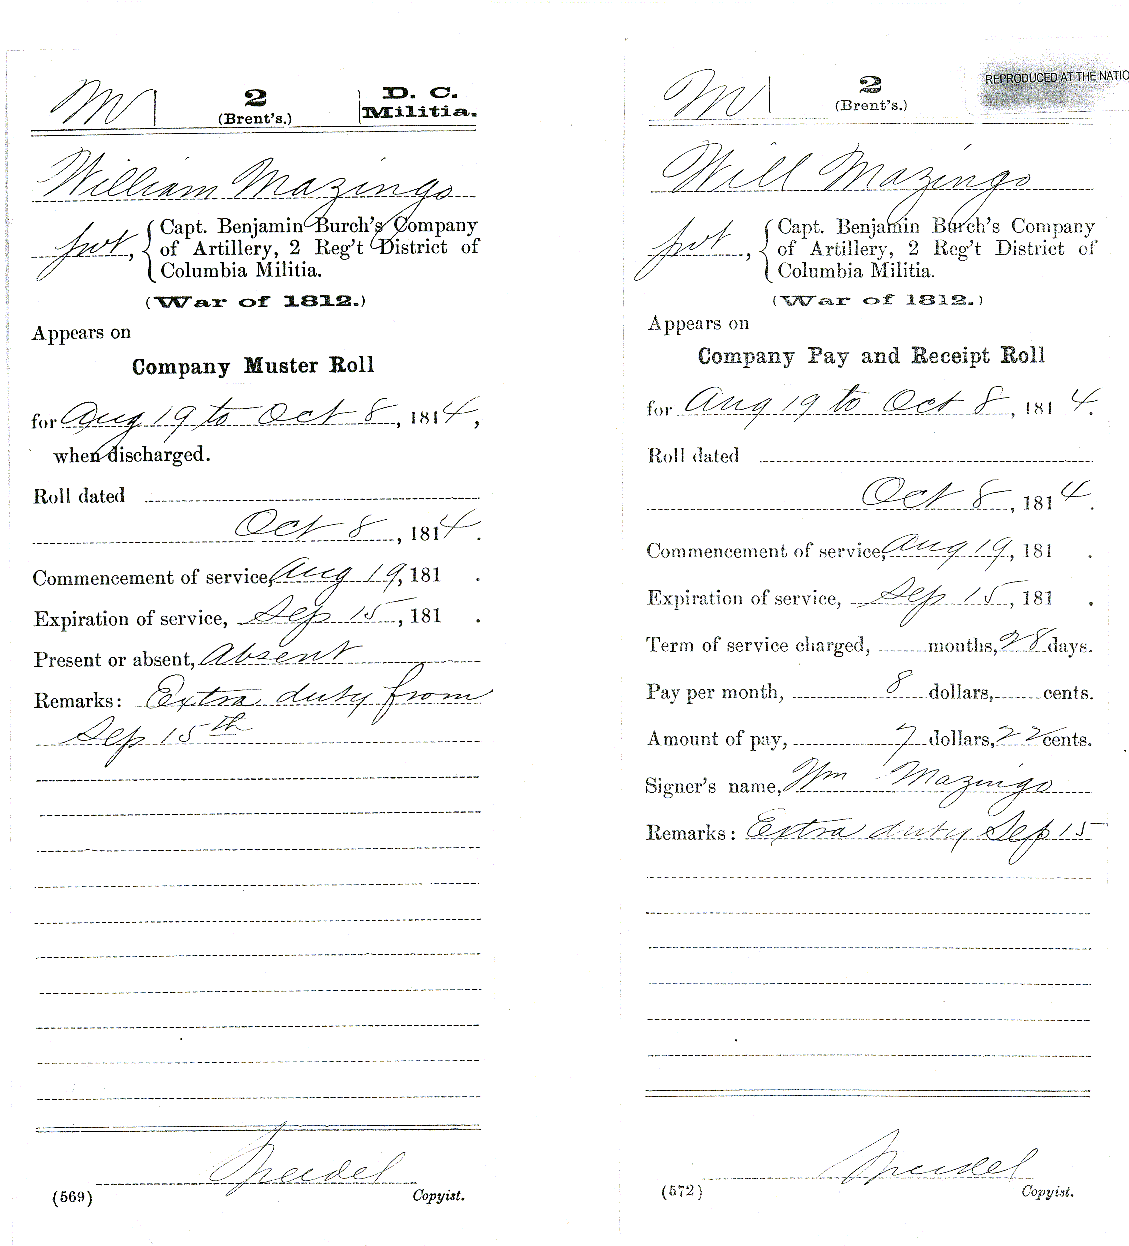 M 2 D. C.
(Brent's.) Militia.
William Mazingo
pvt, { Capt. Benjamin Burch's Company
of Artillery, 2 Reg't District of
Columbia Militia.
(War of 1812.)
Appears on
Company Muster Roll
for Aug 19 to Oct 8, 1814,
when discharged.
Roll dated
Oct 8, 1814.
Commencement of service, Aug 19, 181 .
Expiration of service, Sep 15, 181 .
Present or absent, Absent
Remarks: Extra duty from
Sep 15th
(569) Copyist.
M 2 REPRODUCED AT THE NATIO
(Brent's.)
Will Mazingo
pvt, { Capt. Benjamin Burch's Company
of Artillery, 2 Reg't District of
Columbia Militia.
(War of 1812.)
Appears on
Company Pay and Receipt Roll
for Aug 19 to Oct 8, 1814.
Roll dated
Oct 8, 1814.
Commencement of service, Aug 19, 181 .
Expiration of service, Sep 15, 181 .
Term of service charged, months, 28 days.
Pay per month, 8 dollars, cents.
Amount of pay, 7 dollars, 22 cents.
Signer's name, Wm Mazingo
Remarks: Extra duty Sep 15
(572) Copyist.